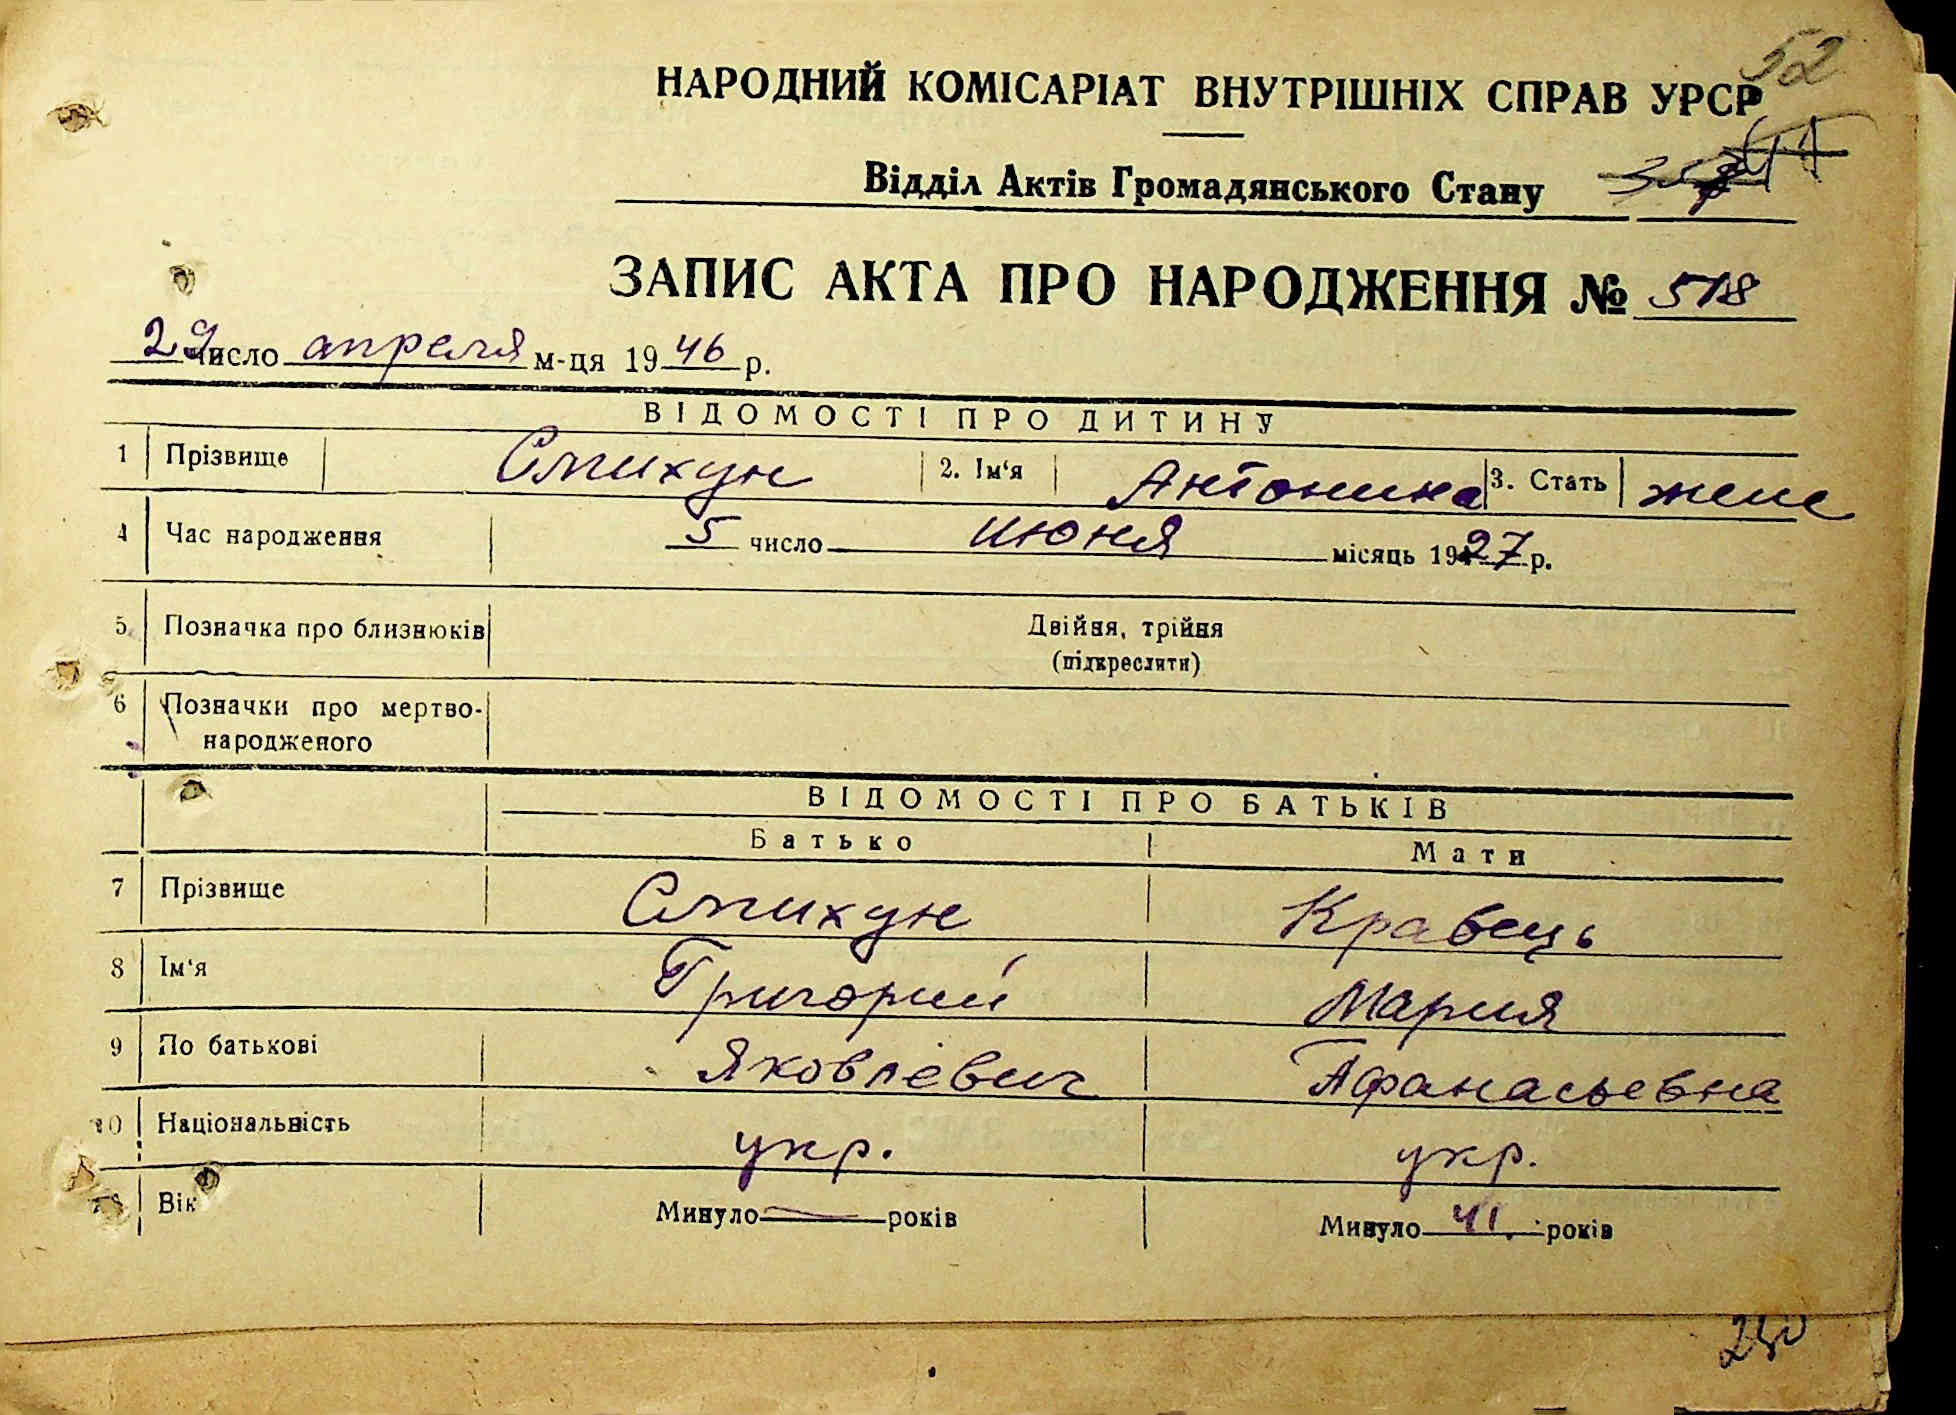 52
НАРОДНИЙ КОМІСАРІАТ ВНУТРІШНІХ СПРАВ УРСР
Відділ Актів Громадянського Стану
ЗАПИС АКТА ПРО НАРОДЖЕННЯ № 518
29 число апреля м-ця 1946 р.
ВІДОМОСТІ ПРО ДИТИНУ
1 Прізвище Стихун 2. Ім'я Антонина 3. Стать женс
4 Час народження 5 число июня місяць 1927 р.
5 Позначка про близнюків Двійня, трійня
(підкреслити)
6 Позначки про мертво-
народженого
ВІДОМОСТІ ПРО БАТЬКІВ
Батько Мати
7 Прізвище Стихун Кравець
8 Ім'я Григорий Мария
9 По батькові Яковлевич Афанасьевна
10 Національність укр. укр.
Вік Минуло — років Минуло 41. років